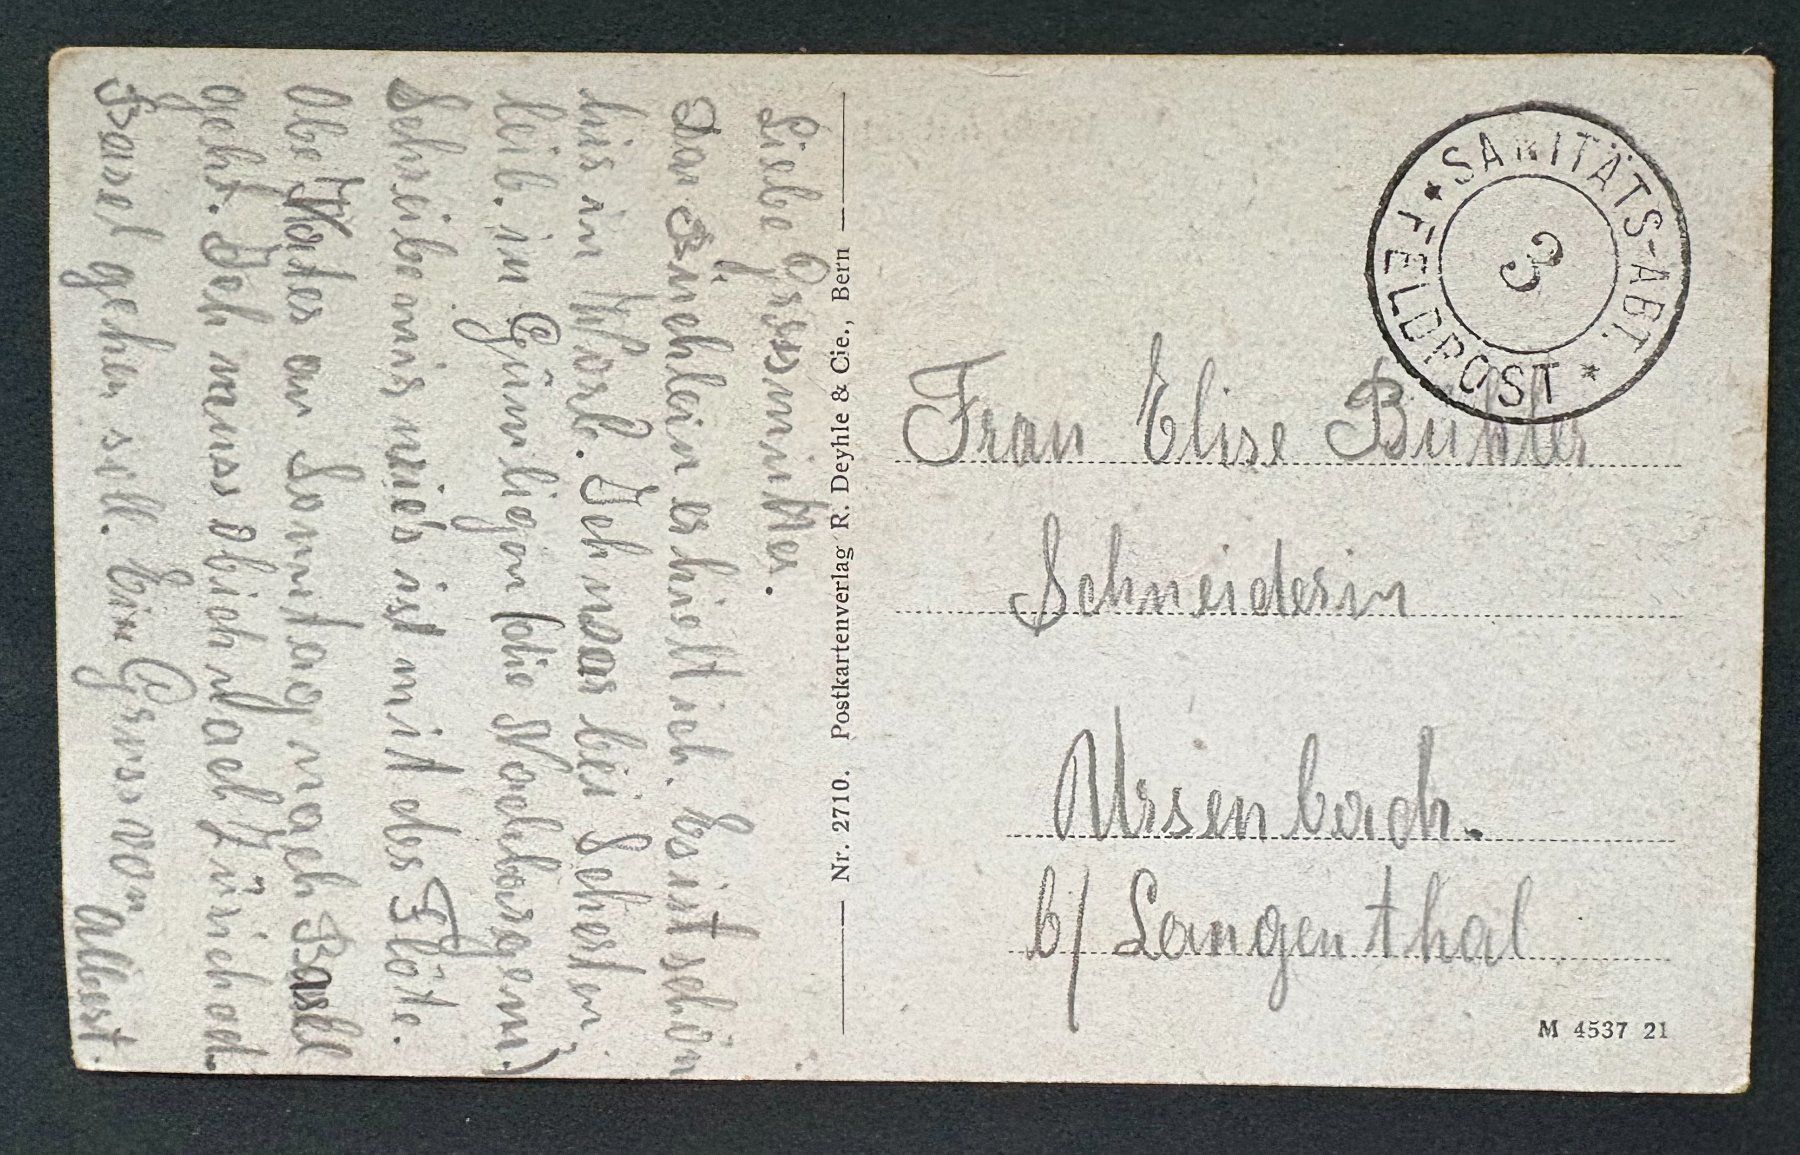 Liebe Grossmutter.
Das Büchlein erhielt ich. Es ist schön
hir in Worb. Ich war bei Schestern
leib. in Gümligen (die Nachbargem.)
Schreibe mir mich ist mit der Flöte.
Ob Vater am Sonntag nach Basel
geht. Ich muss ob ich nach Zürich od.
Basel gehen soll. Ein Gruss von
Albert.
Nr. 2710. Postkartenverlag R. Deyhle & Cie., Bern
* SANITÄTS-ABT. *
FELDPOST
3
Frau Elise Bühler
Schneiderin
Ursenbach.
b/ Langenthal
M 4537 21